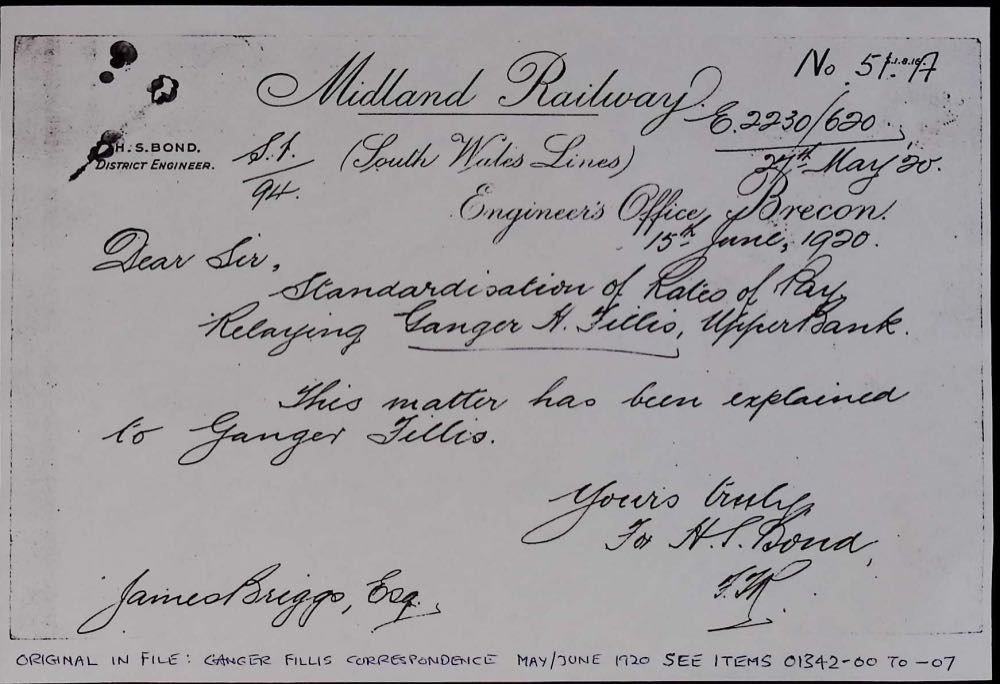 No 51
Midland Railway.
E.2230/620.
H. S. BOND,
DISTRICT ENGINEER.
S.1.
94.
(South Wales Lines)
27th May 20.
Engineer's Office, Brecon.
15th June, 1920.
Dear Sir,
Standardisation of Rates of Pay
Relaying Ganger H. Fillis, Upper Bank.
This matter has been explained
to Ganger Fillis.
Yours truly,
For H. S. Bond,
James Briggs, Esq.,
ORIGINAL IN FILE: GANGER FILLIS CORRESPONDENCE MAY/JUNE 1920 SEE ITEMS 01342-00 TO -07